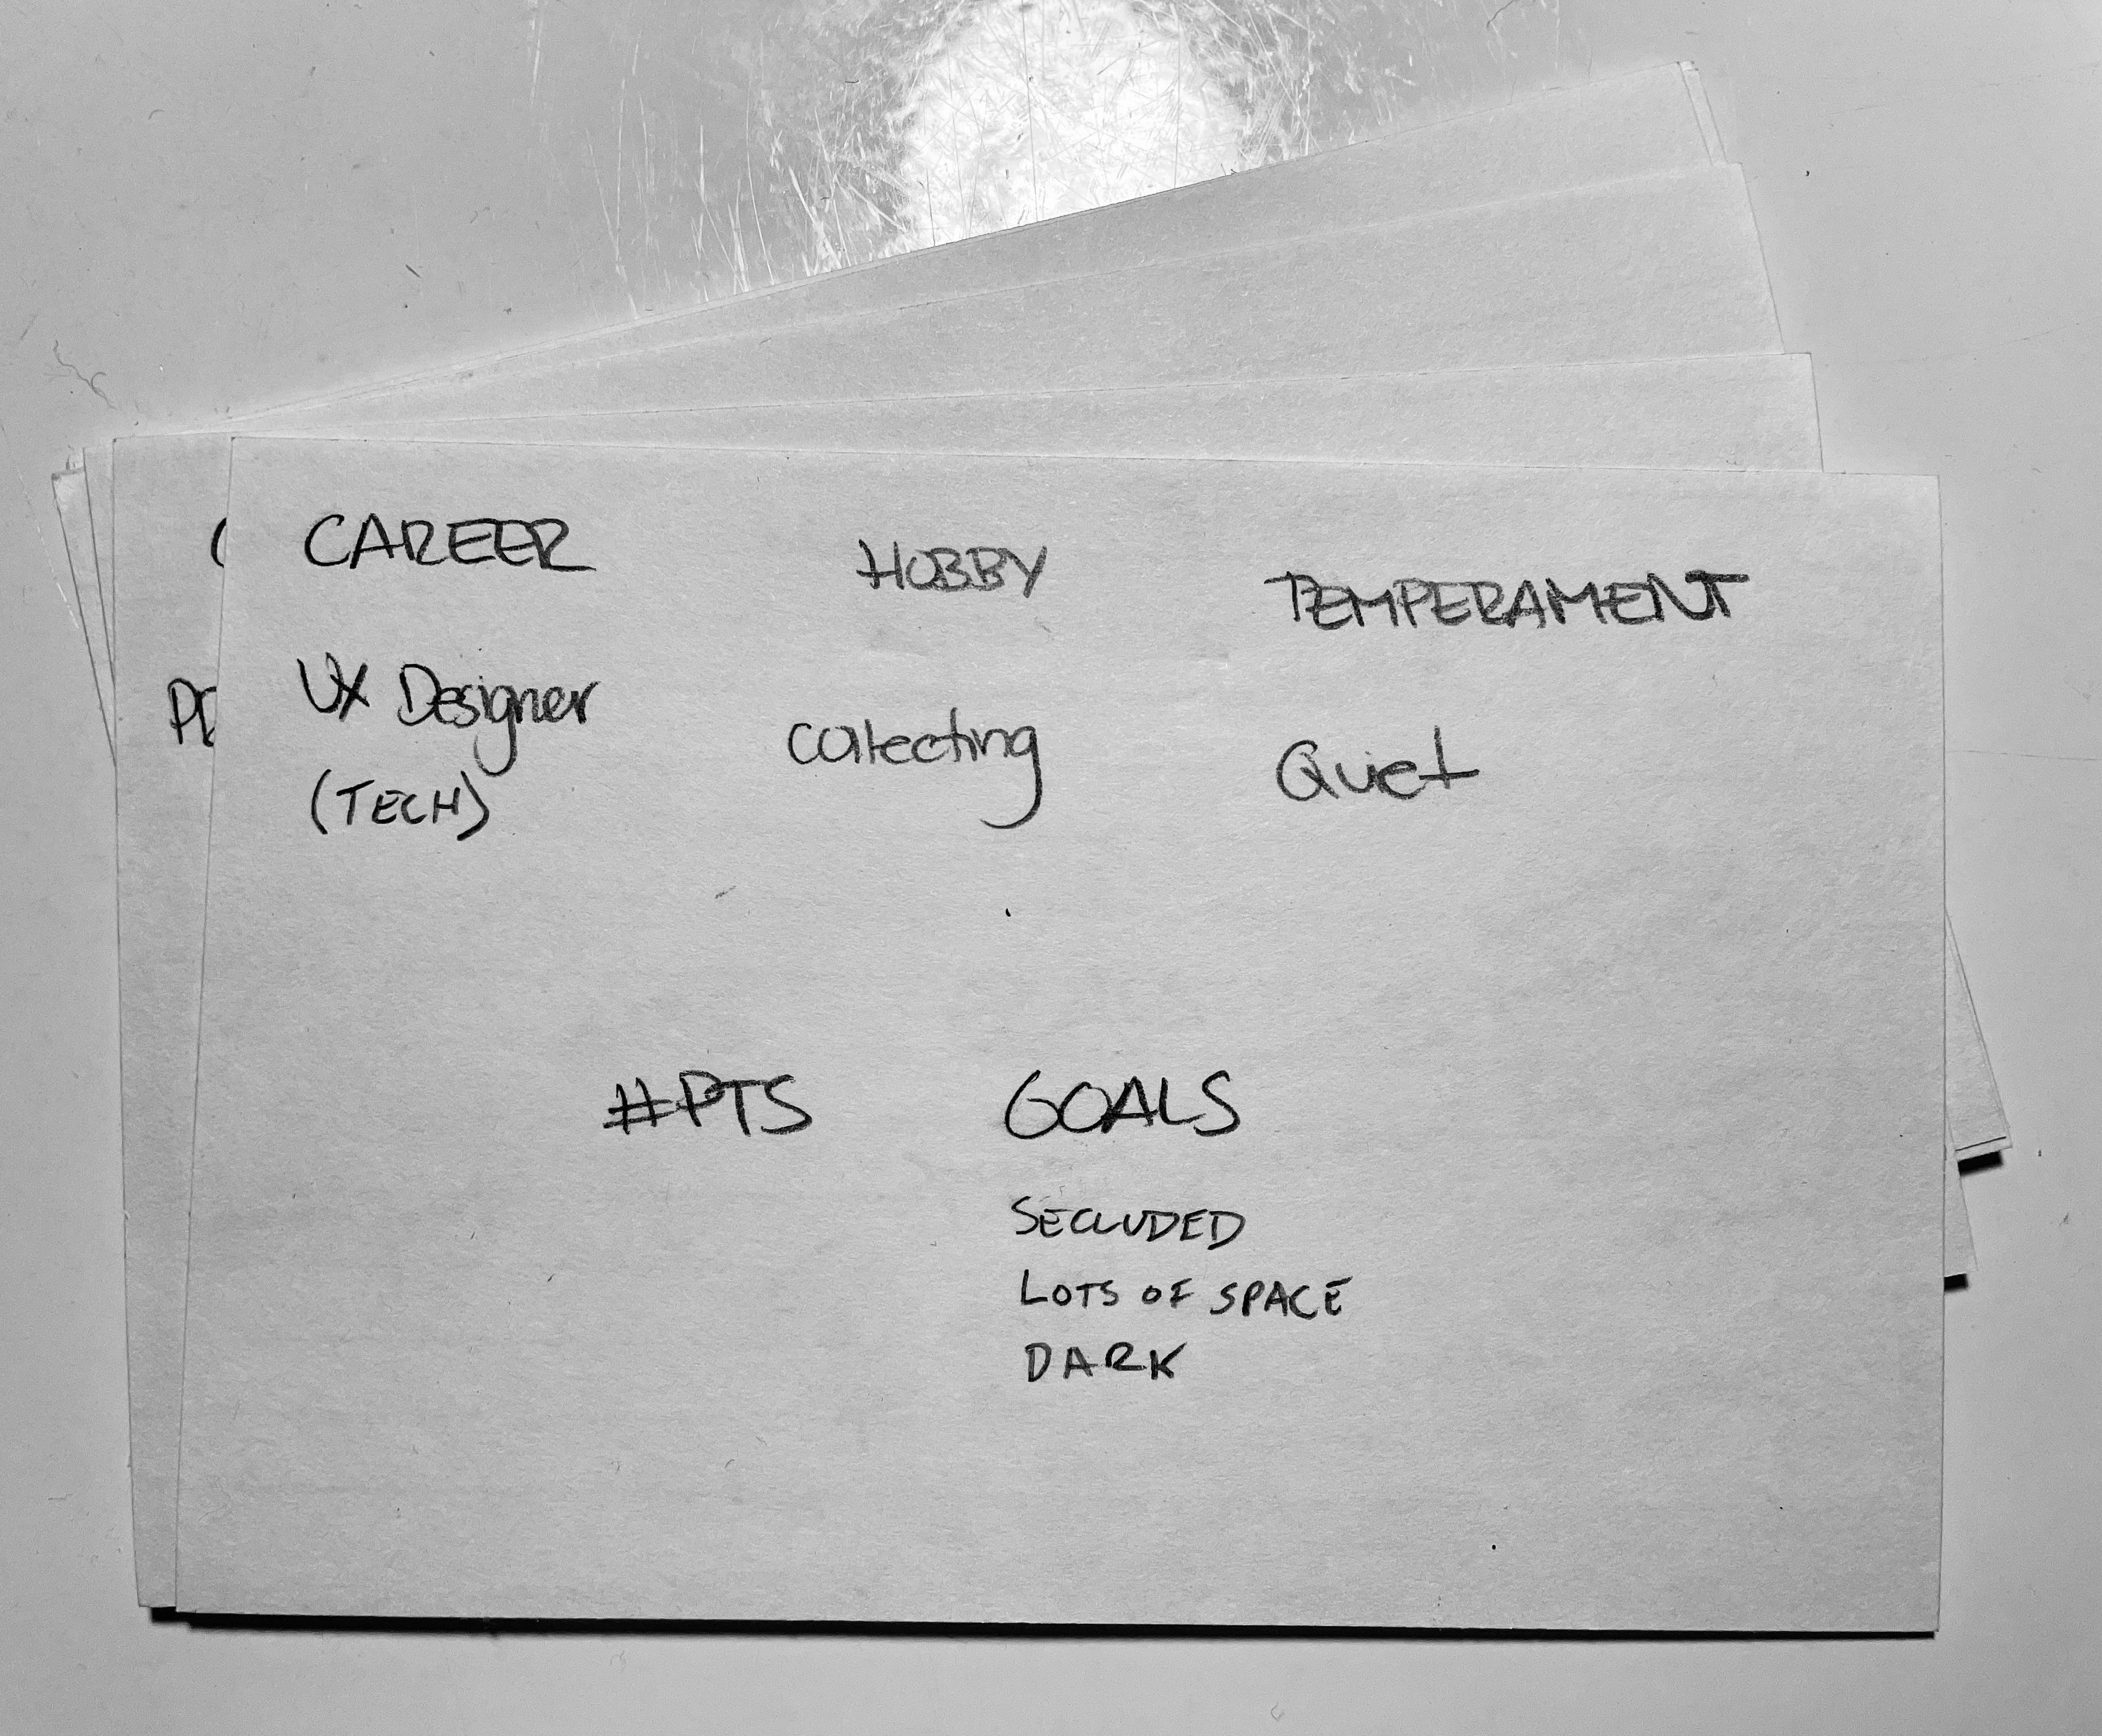 CAREER HOBBY TEMPERAMENT
UX Designer Collecting Quiet
(TECH)
#PTS GOALS
SECLUDED
LOTS OF SPACE
DARK